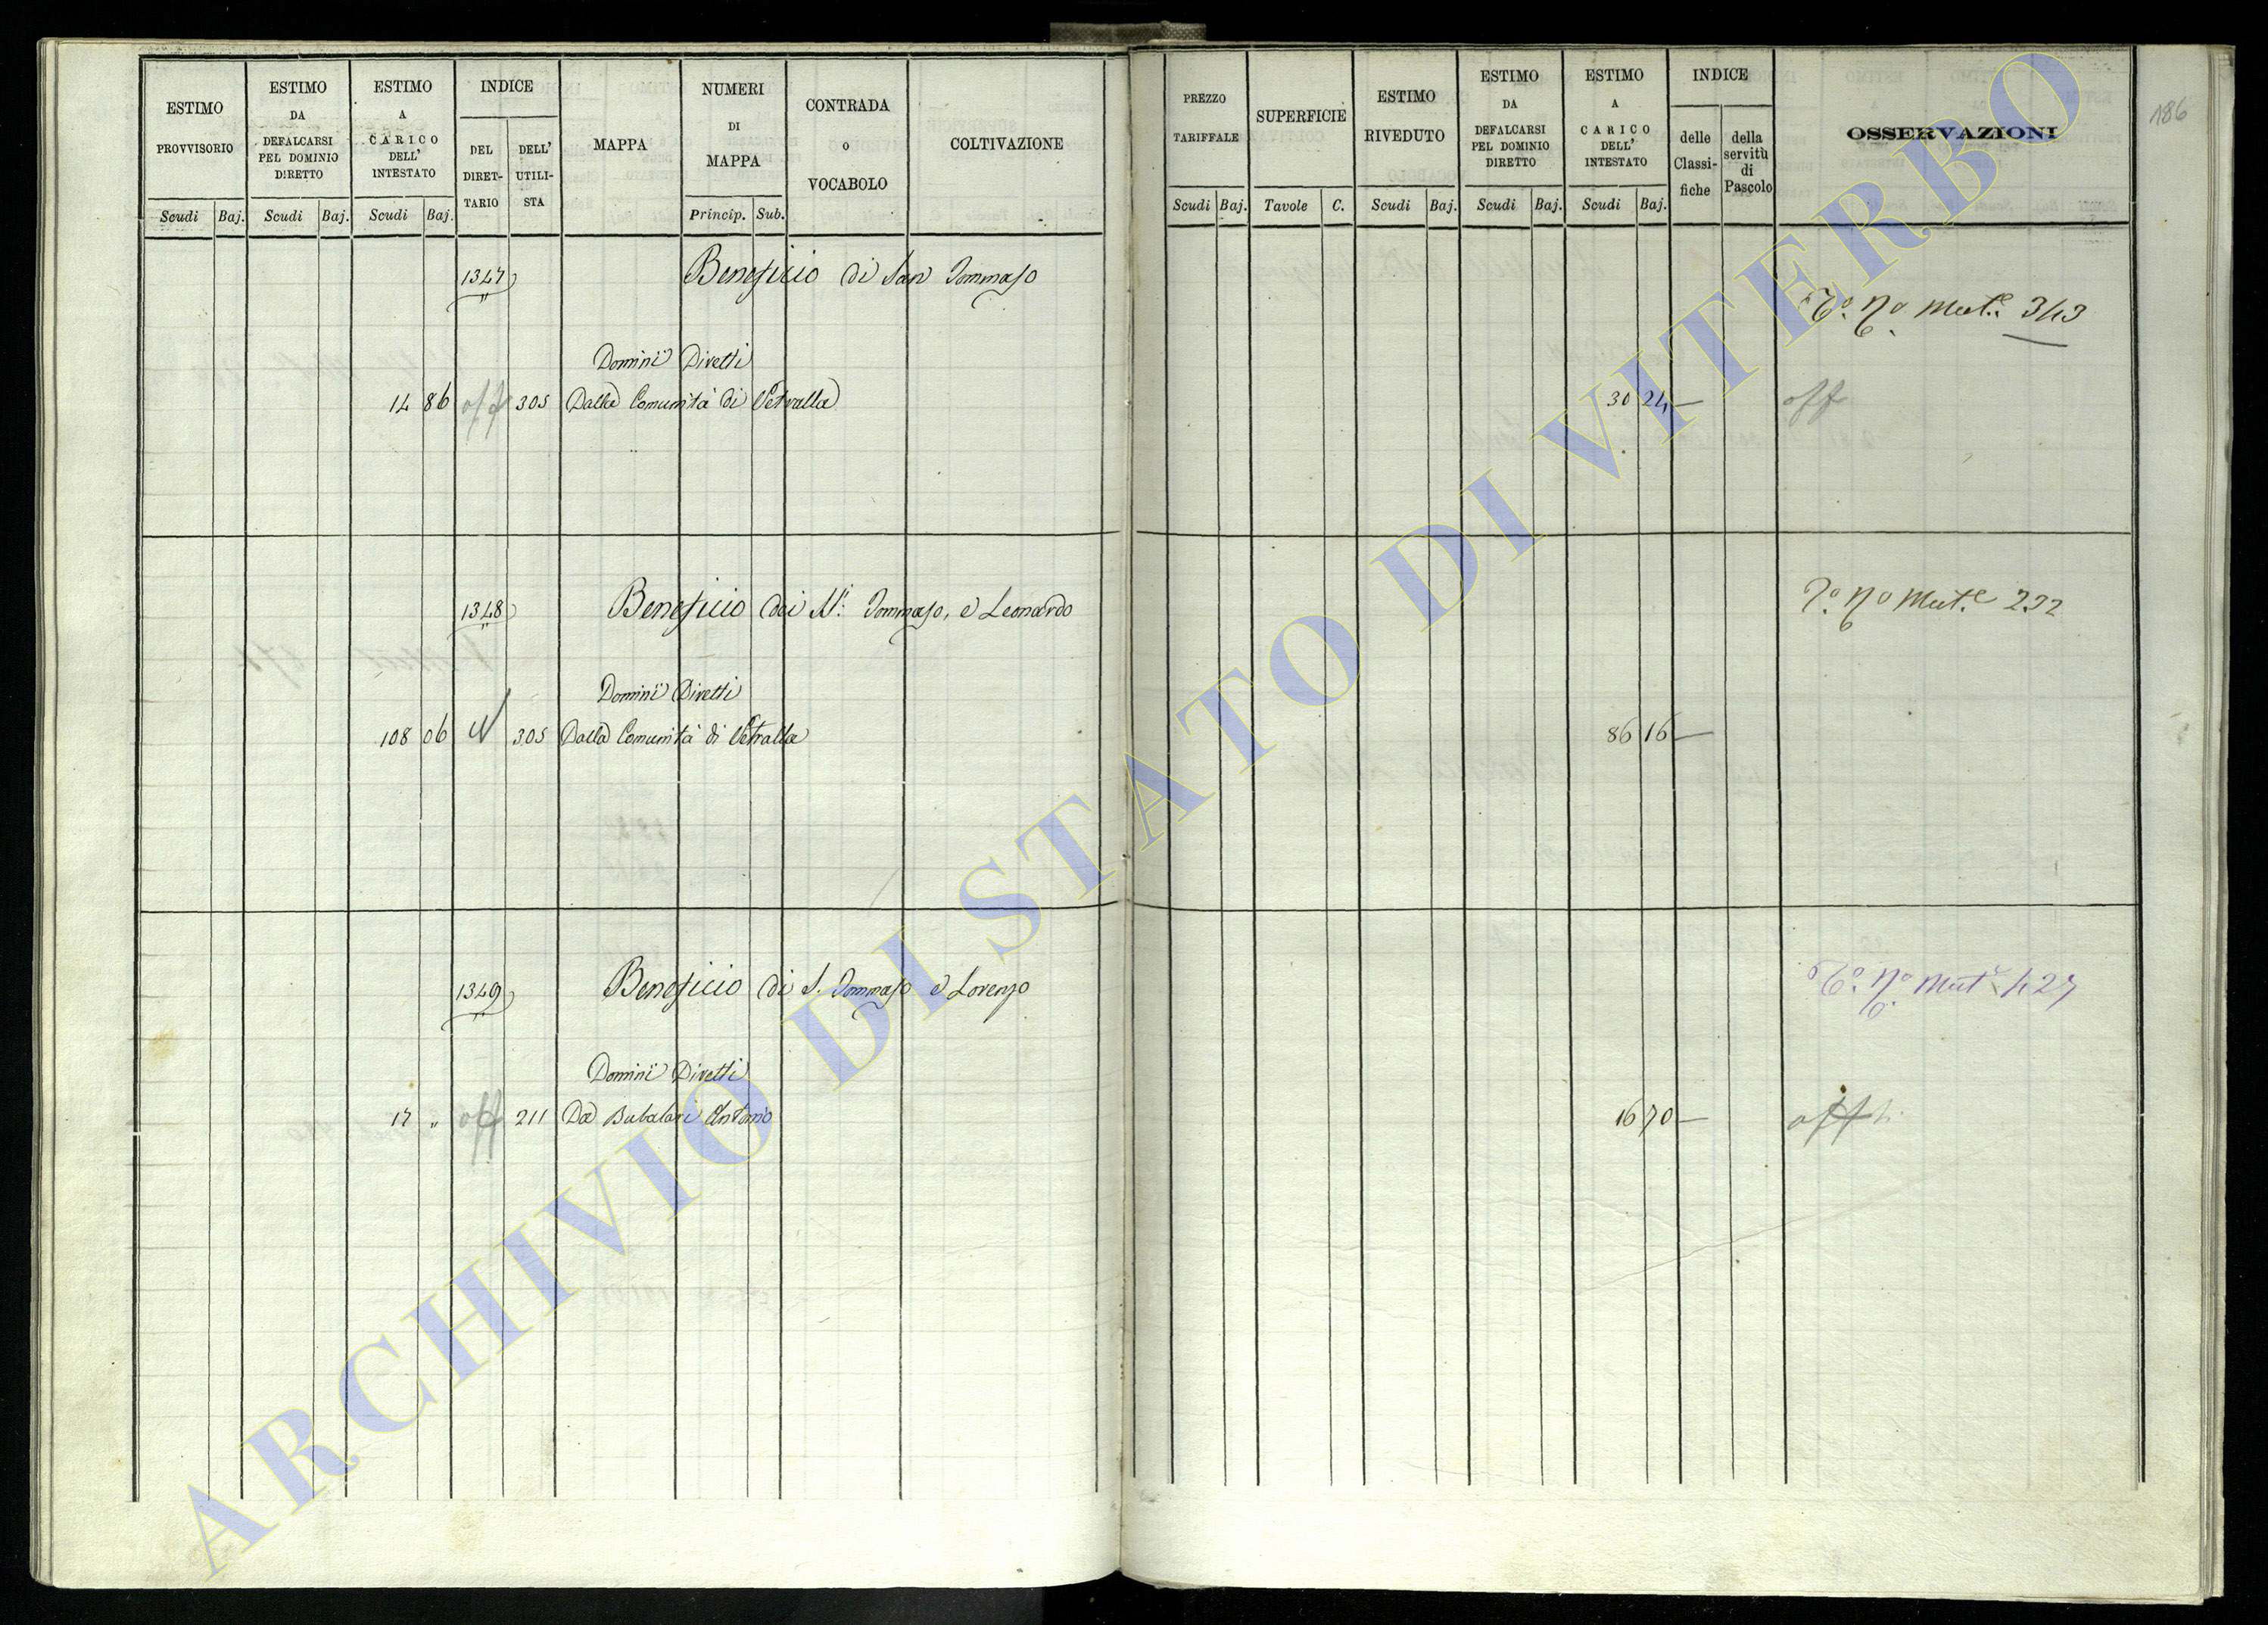 ESTIMO PROVVISORIO
Scudi Baj.
ESTIMO DA DEFALCARSI PEL DOMINIO DIRETTO
Scudi Baj.
ESTIMO A CARICO DELL' INTESTATO
Scudi Baj.
INDICE
DEL DIRET-TARIO
DELL' UTILI-STA
MAPPA
NUMERI DI MAPPA
Princip. Sub.
CONTRADA o VOCABOLO
COLTIVAZIONE
PREZZO TARIFFALE
Scudi Baj.
SUPERFICIE
Tavole C.
ESTIMO RIVEDUTO
Scudi Baj.
ESTIMO DA DEFALCARSI PEL DOMINIO DIRETTO
Scudi Baj.
ESTIMO A CARICO DELL' INTESTATO
Scudi Baj.
INDICE
delle Classi-fiche
della servitù di Pascolo
OSSERVAZIONI
186
1347 Beneficio di San Tommaso
Tº. Nº Mut.e 343
Dominii Diretti
14 86 off 305 Dalla Comunità di Vetralla 30 24 — off
1348 Beneficio dei SS.i Tommaso, e Leonardo
Tº. Nº Mut.e 232
Dominii Diretti
108 06 305 Dalla Comunità di Vetralla 86 16 —
1349 Beneficio di S. Tommaso e Lorenzo
Tº. Nº Mut.e 427
Dominii Diretti
17 " off 211 Da Bubalari Antonio 16 70 — off
ARCHIVIO DI STATO DI VITERBO